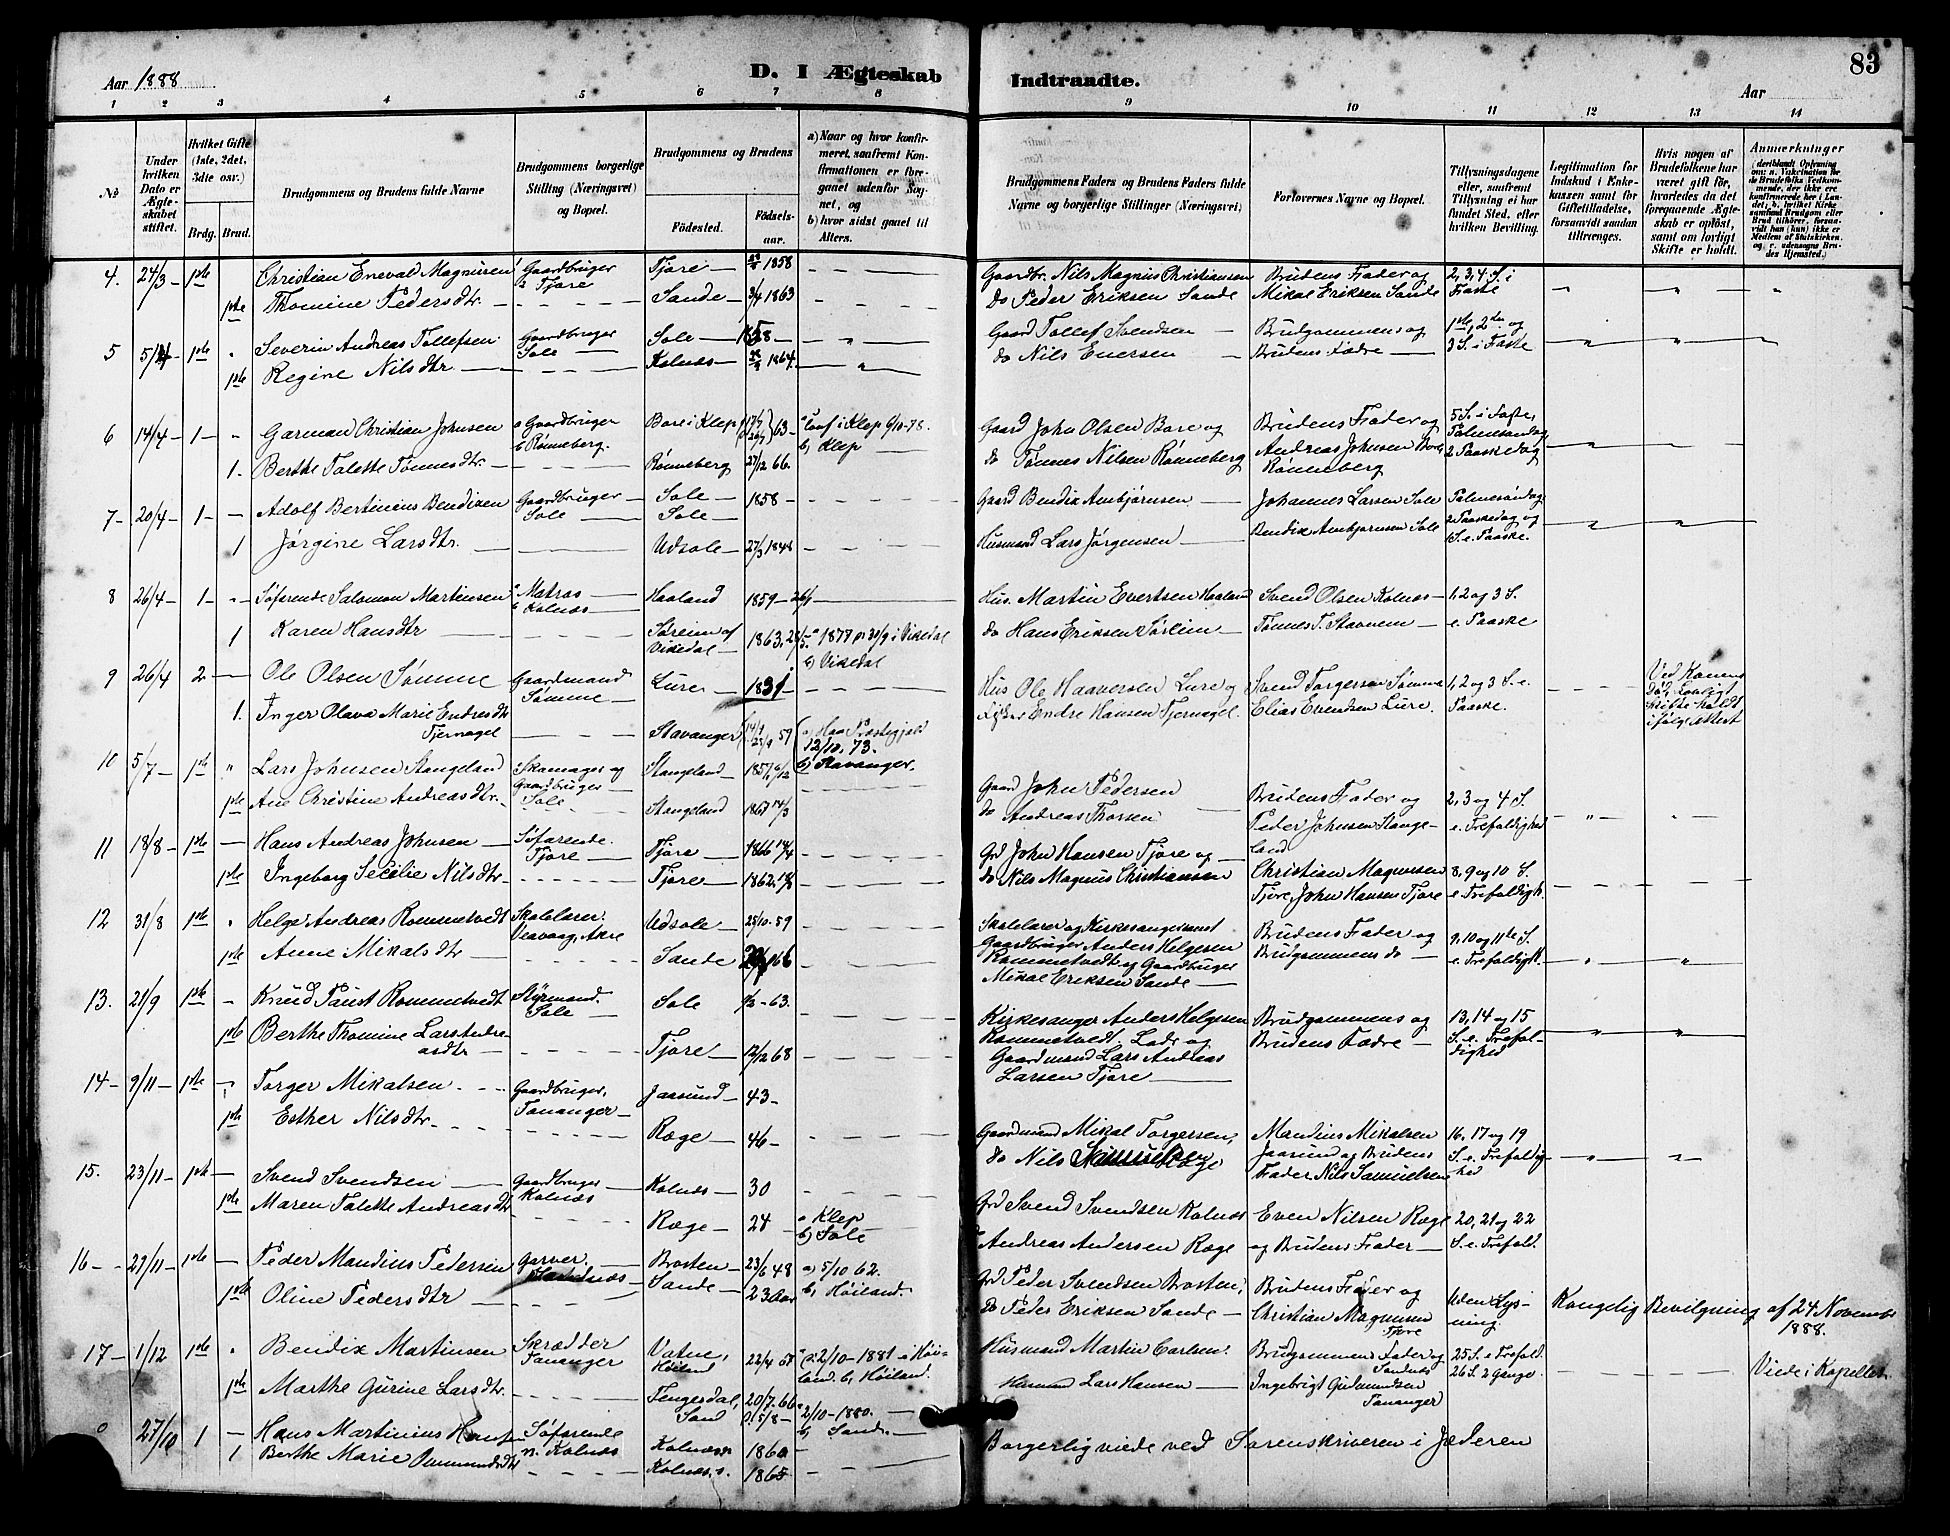 Aar 1888
D. I Ægteskab
Indtraadte.
Aar
83
1 2 3 4 5 6 7 8 9 10 11 12 13 14
№
Under hvilken Dato er Ægteskabet stiftet.
Hvilket Gifte (1ste, 2det, 3dte osv.)
Brdg. Brud.
Brudgommens og Brudens fulde Navne
Brudgommens borgerlige Stilling (Næringsvei) og Bopæl.
Brudgommens og Brudens
Födested.
Födselsaar.
a) Naar og hvor konfirmeret, saafremt Konfirmationen er foregaaet udenfor Sognet, og
b) hvor sidst gaaet til Alters.
Brudgommens Faders og Brudens Faders fulde Navne og borgerlige Stillinger (Næringsvei)
Forlovernes Navne og Bopæl.
Tillysningsdagene eller, saafremt Tillysning ei har fundet Sted, efter hvilken Bevilling.
Legitimation for Indskud i Enkekassen samt for Giftetilladelse, forsaavidt saadan tiltrænges.
Hvis nogen af Brudefolkene har været gift för, hvorledes da det foregaaende Ægteskab er oplöst, samt om lovligt Skifte er holdt.
Anmærkninger
4. 24/3 1ste Christian Enevald Magnussen Gaardbruger Tjore Tjore 1858
Gaardbr. Nils Magnus Christiansen Brudens Fader og 2, 3, 4 S. i
1ste Thomine Pedersdtr. Sande 3/4 1863
do Peder Eriksen Sande Mikal Eriksen Sande Faste
5 1ste Severin Andreas Tollefsen Gaardbruger Sole Sole
Gaard Tollef Svendsen Brudgommens og 1ste, 2den og
1ste Regine Nilsdtr. Kolnæs 1864
do Nils Enersen Brudens Fædre 3 S. i Faste
6 14/4 1 Garman Christian Johnsen a Gaardbruger b Rønneberg. Bore i Klep 63 Conf i Klep 6/10 78. b, Klep
Gaard John Olsen Bore og Brudens Fader og 5 S. i Faste,
1. Berthe Talette Tønnesdtr. Rønneberg 27/12 66.
do Tønnes Nilsen Rønneberg Andreas Johnsen Bore Palmesøndag 2 Paaskedag
7 20/4 1 Adolf Bertinius Bendixen Gaardbruger Sole Sole 1858
Gaard Bendix Ambjørnsen Johannes Larsen Sole Palmesøndag
1 Jørgine Larsdtr. Udsole 27/3
Husmand Lars Jørgensen Bendix Ambjørnsen Sole 2 Paaskedag og 1 S. e. Paaske.
8 26/4 1 Søfarende Salomon Martinsen a Matros b Kolnæs Haaland 1859
Hus. Martin Evertsen Haaland Svend Olsen Kolnæs 1, 2 og 3 S.
1 Karen Hansdtr Søreim af Vikedal 1863. i Vikedal b) Vikedal
do Hans Eriksen Søreim Tønnes T. Stavnem e. Paaske
9 26/4 2 Ole Olsen Sømme Gaardmand Sømme Lure 1831
Hus Ole Haaversen Lure og Svend Torgersen Sømme 1, 2 og 3 S. e. Ved Konens Død. Lovligt Skifte holdt ifølge Attest
1. Inger Olava Marie Endresdtr Tjernagel Stavanger 59 12/10. 73. b) Stavanger.
Endre Hansen Tjernagel. Elias Evendsen Lure. Paaske.
10 5/7 1ste Lars Johnsen Stangeland Skomager og Gaardbruger Sole Stangeland 1857
Gaard John Pedersen Brudens Fader og 2, 3 og 4 S.
1ste Ane Christine Andreasdtr. Stangeland 14/3
do Andreas Thorsen Peder Johnsen Stangeland e. Trefoldighed
11 18/8 1ste Hans Andreas Johnsen Søfarende. Tjore Tjore 1866
Grd John Hansen Tjore og Christian Magnussen 8, 9 og 10 S.
1ste Ingeborg Secelie Nilsdtr. Tjore 1862.
do Nils Magnus Christiansen Tjore, John Hansen Tjore e. Trefoldigh.
12 31/8 1ste Helge Andreas Rommetvedt Skolelærer. Veavaag, Akre Udsole 25/10. 59
Skolelærer og Kirkesanger samt Brudens Fader og 9, 10 og 11te S.
1ste Anne Mikalsdtr Sande 66
Gaardbruger Anders Helgesen Rommetvedt og Gaardbruger Mikal Eriksen Sande Brudgommens do e. Trefoldigh.
13. 21/9 1ste Knud Faust Rommetvedt Styrmand. Sole Sole 63.
Kirkesanger Anders Helgesen Brudgommens og 13, 14 og 15
1ste Berthe Thomine Lars Andreasdtr Tjore 12/12 68
Rommetvedt, og Gaardmand Lars Andreas Larsen Tjore Brudens Fædre S. e. Trefoldighed
14 9/11 1ste Torger Mikalsen. Gaardbruger, Tananger Jaasund 43
Gaardmand Mikal Torgersen, Mandius Mikalsen 16, 17 og 19
1ste Esther Nilsdtr. Ræge 46
do Nils Samuelsen Ræge Jaasund og Brudens Fader Nils Samuelsen S. e. Trefoldighed
15. 23/11 1ste Svend Svendsen Gaardbruger Kolnæs Kolnæs 30
Grd Svend Svendsen Kolnæs Even Nilsen Ræge 20, 21 og 22
1ste Maren Talette Andreasdtr Ræge 24 a Klep b) Sole
Andreas Andersen Ræge og Brudens Fader S. e. Trefold.
16 27/11 1ste Peder Mandius Pedersen Garver. Brosten 23/6 48 a) 5/10 62. b, Høiland.
Grd Peder Svendsen Brosten, Brudens Fader og Uden Lysning. Kongelig Bevilgning af 24 November 1888.
1ste Oline Pedersdtr Sande 23 Aar
do Peder Eriksen Sande Christian Magnussen Tjore
17 1/12 1ste Bendix Martinsen Skrædder Tananger Vatne, Høiland 22/4 a) 2/10 1881 i Høiland. b, Høiland.
Husmand Martin Carlsen. Brudgommens Fader og 25 S. e Trefold.
1ste Marthe Gurine Larsdtr. Sand 20/7. 66 2/10 1880. b, Sand.
Husmand Lars Hansen Ingebrigt Gudmundsen Tananger 26 S. 2 Gange Viede i Kapellet
0 27/10 1 Hans Martinius Hansen Søfarende n. Kolnæs Kolnæs
Borgerlig viede ved Sorenskriveren i Jæderen
1 Berthe Marie Ommundsdtr Kolnæs. 1865